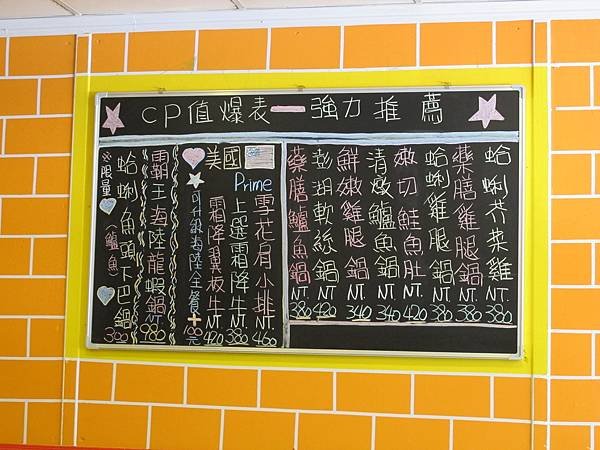 CP值爆表一強力推薦
蛤蜊芥菜雞 NT.380
藥膳雞腿鍋 NT.380
蛤蜊雞腿鍋 NT.380
嫩切鮭魚肚 NT.420
清燉鱸魚鍋 NT.340
鮮嫩雞腿鍋 NT.340
澎湖軟絲鍋 NT.420
藥膳鱸魚鍋 NT.380
美國
Prime
雪花肩小排 NT.460
上選霜降牛 NT.380
霜降翼板牛 NT.420
可升級海陸全餐+100元
霸王海陸龍蝦鍋 NT 980
蛤蜊魚頭下巴鍋 380
※限量
(鱸魚)